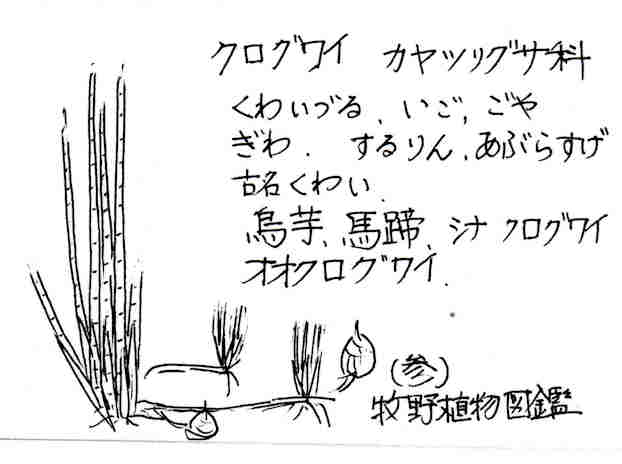 クログワイ カヤツリグサ科
くわいづる、いご、ごや
ぎわ、するりん、あぶらすげ
古名くわい、
烏芋、馬蹄、シナクログワイ
オオクログワイ.
(参)
牧野植物図鑑